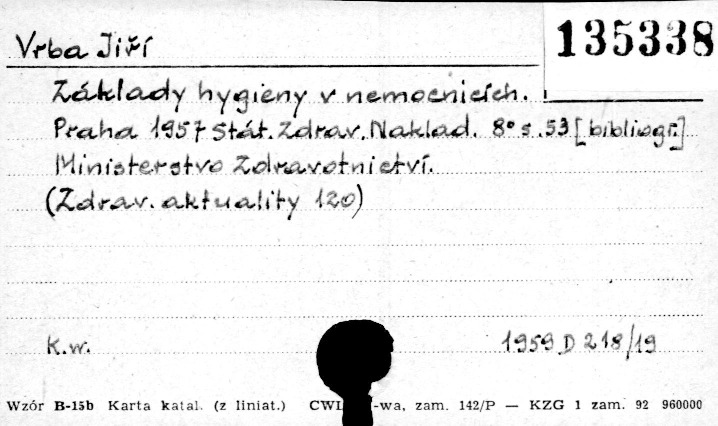 Vrba Jiří
135338
Základy hygieny v nemocnicích.
Praha 1957 Stát. Zdrav. Naklad. 8° s. 53 [bibliogr.]
Ministerstvo Zdravotnictví.
(Zdrav. aktuality 120)
K.w. 1959 D 218/19
Wzór B-15b Karta katal. (z liniat.) CW -wa, zam. 142/P — KZG 1 zam. 92 960000